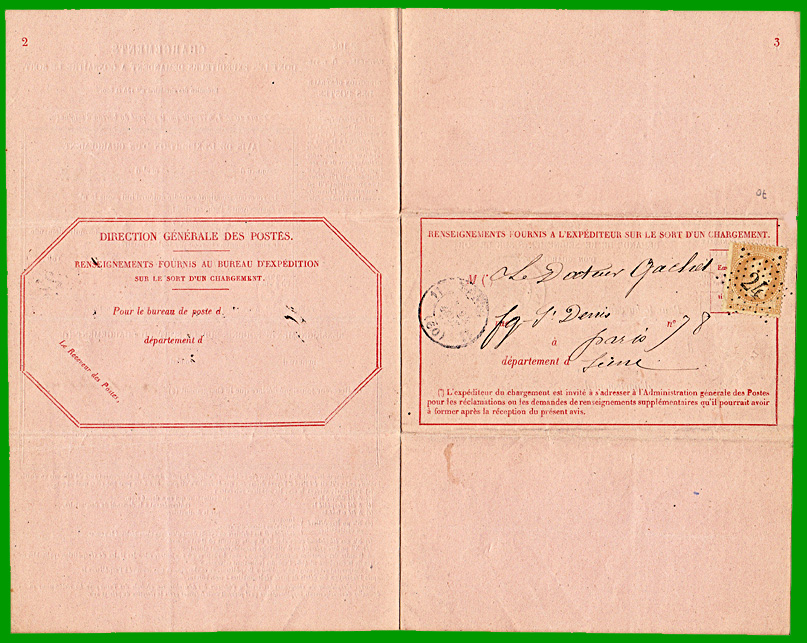 2
DIRECTION GÉNÉRALE DES POSTES.
RENSEIGNEMENTS FOURNIS AU BUREAU D'EXPÉDITION
SUR LE SORT D'UN CHARGEMENT.
Pour le bureau de poste d
département d
Le Receveur des Postes,
3
RENSEIGNEMENTS FOURNIS A L'EXPÉDITEUR SUR LE SORT D'UN CHARGEMENT.
M (*) Le Docteur Gachet
24
fg St Denis n° 78
à paris
département d Seine
(*) L'expéditeur du chargement est invité à s'adresser à l'Administration générale des Postes
pour les réclamations ou les demandes de renseignements supplémentaires qu'il pourrait avoir
à former après la réception du présent avis.